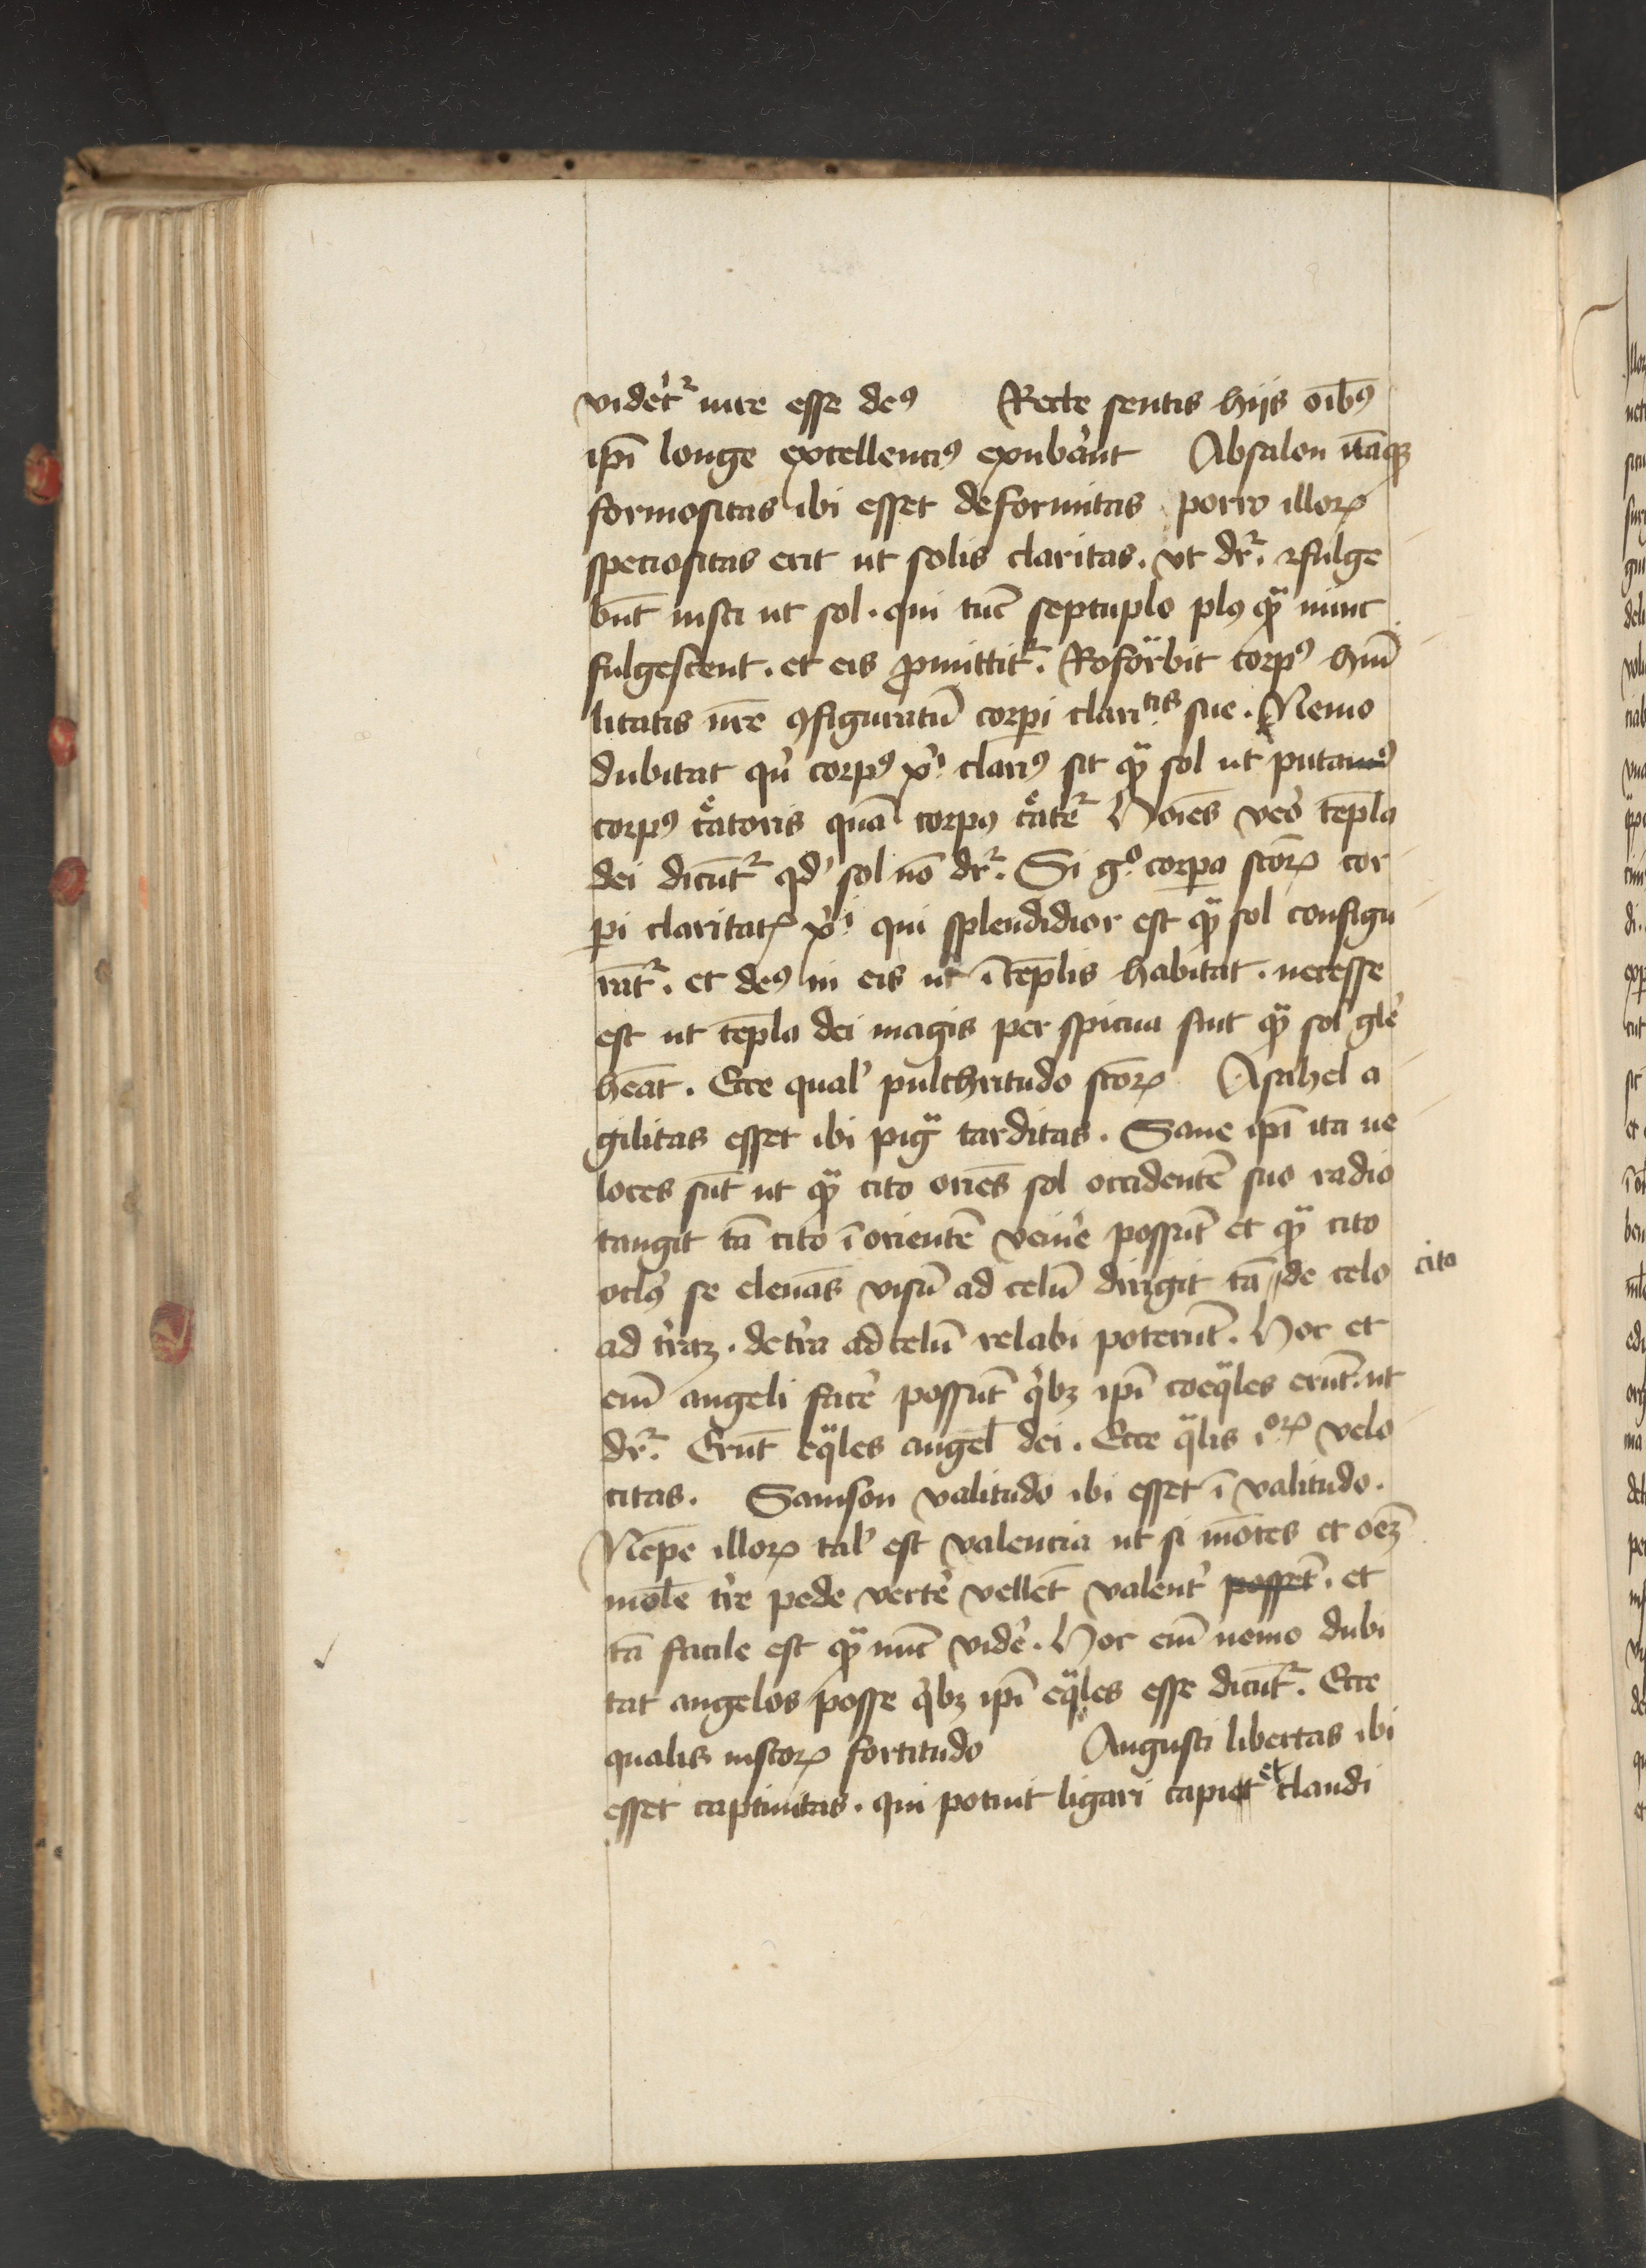 videt᷑ iure esse deꝰ Recte sentis hijs oīb̄ꝰ
ip̄i longe excellenciꝰ exub̾ant Absalon itāqꝫ
formositas ibi esset deformitas porro illoꝝ
speciositas erit ut solis claritas . vt dr᷑ . rfulge
bn̄t iusti ut sol . qui tūc septuplo plꝰ qᷓ nunc
fulgescent . et eis ꝓmittit᷑ . Reforᷓbit corpꝰ hūi
litatis nr̄e ꝯfiguratū corpi̅ claritis sue . Nemo
dubitat qn̾ corpꝰ xͥ clariꝰ sit qᷓ sol ut putamꝰ
corpꝰ c̾atoris quā corpꝰ c̾ate᷑ Hoīes ve̾o tēpla
dei dicūt᷑ qd̾ sol nō dr᷑ . Si gͦ . corpa scōꝝ cor
pi claritatꝭ xͥ . qui splendidior est qᷓ sol configu
rāt᷑ . et deꝰ in eis ut ī tēplis habitat . necesse
est ut tēpla dei magis per spicua sint qᷓ sol gl̾e
hēat . Ecce qual̾ pulchritudo scōꝝ Asahel a
gilitas esset ibi pigᷓ tarditas . Sane ip̄i ita ue
loces sūt ut qᷓ cito oriēs sol occidentē suo radio
tangit tā cito ī orientē veni̾e possūt et qᷓ cito
oclꝰ se eleuās visū ad celū dirigit tā de celo cito
ad t̾raꝫ . de t̾ra ad celū relabi poterūt . Hoc et
em̄ angeli face̾ possūt qͥbꝫ ip̄i coeqᷓles erūt . ut
dr᷑ . Erūt eqᷓles angel̄ dei . Ecce qᷓlis iͦꝝ velo
citas . Samson valitudo ibi esset ī valitudo .
Nēpe illoꝝ tal̾ est valencia ut si mōtes et oēꝫ
molē t̾re pede verte̾ vellēt valent̾ possēt . et
tā facile est qᷓ nūc vide̾ . Hoc em̄ nemo dubi
tat angelos posse qͥbꝫ ip̄i eqᷓles esse dicūt᷑ . Ecce
qualis iustoꝝ fortitudo Augusti libertas ibi
esset captiuitas . qui potuit ligari capi et claudi